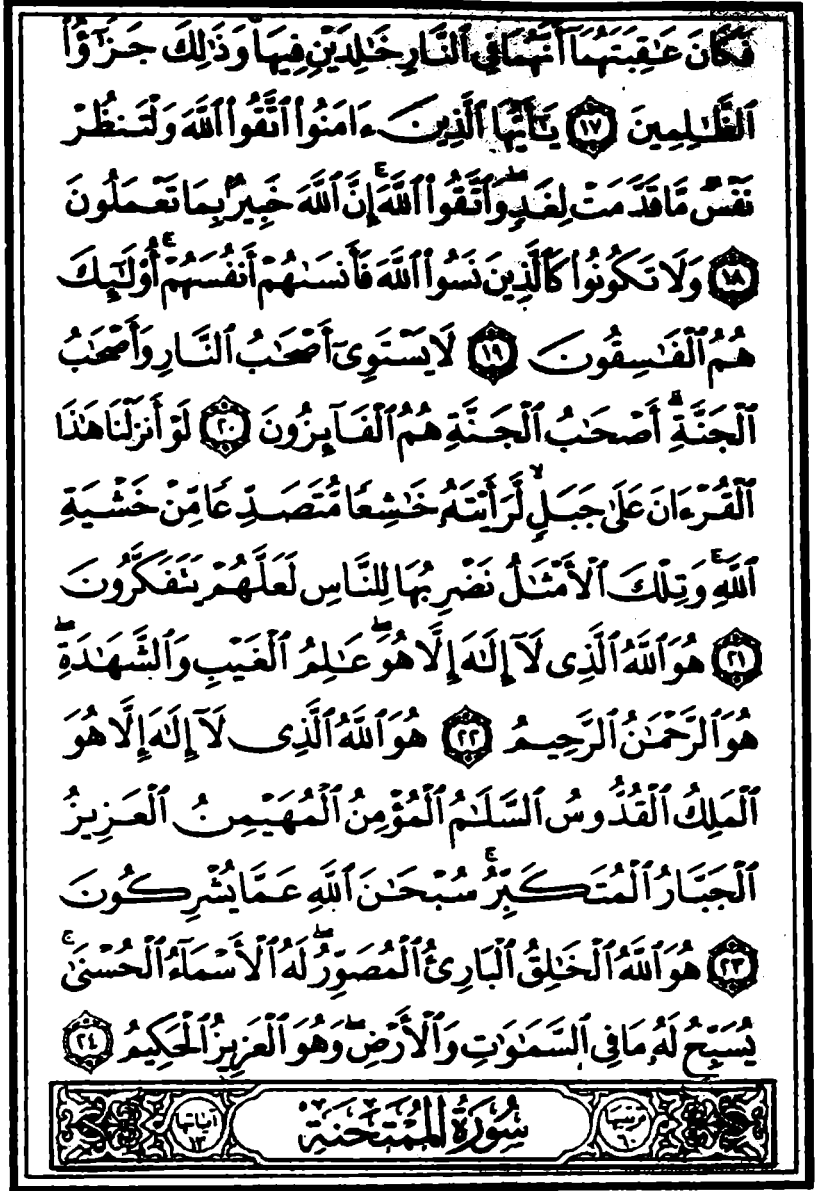 فَكَانَ عَٰقِبَتَهُمَآ أَنَّهُمَا فِي ٱلنَّارِ خَٰلِدَيْنِ فِيهَا ۚ وَذَٰلِكَ جَزَٰٓؤُا۟
ٱلظَّٰلِمِينَ ١٧ يَٰٓأَيُّهَا ٱلَّذِينَ ءَامَنُوا۟ ٱتَّقُوا۟ ٱللَّهَ وَلْتَنظُرْ
نَفْسٌ مَّا قَدَّمَتْ لِغَدٍ ۖ وَٱتَّقُوا۟ ٱللَّهَ ۚ إِنَّ ٱللَّهَ خَبِيرٌۢ بِمَا تَعْمَلُونَ
١٨ وَلَا تَكُونُوا۟ كَٱلَّذِينَ نَسُوا۟ ٱللَّهَ فَأَنسَىٰهُمْ أَنفُسَهُمْ ۚ أُو۟لَٰٓئِكَ
هُمُ ٱلْفَٰسِقُونَ ١٩ لَا يَسْتَوِىٓ أَصْحَٰبُ ٱلنَّارِ وَأَصْحَٰبُ
ٱلْجَنَّةِ ۚ أَصْحَٰبُ ٱلْجَنَّةِ هُمُ ٱلْفَآئِزُونَ ٢٠ لَوْ أَنزَلْنَا هَٰذَا
ٱلْقُرْءَانَ عَلَىٰ جَبَلٍ لَّرَأَيْتَهُۥ خَٰشِعًا مُّتَصَدِّعًا مِّنْ خَشْيَةِ
ٱللَّهِ ۚ وَتِلْكَ ٱلْأَمْثَٰلُ نَضْرِبُهَا لِلنَّاسِ لَعَلَّهُمْ يَتَفَكَّرُونَ
٢١ هُوَ ٱللَّهُ ٱلَّذِى لَآ إِلَٰهَ إِلَّا هُوَ ۖ عَٰلِمُ ٱلْغَيْبِ وَٱلشَّهَٰدَةِ ۖ
هُوَ ٱلرَّحْمَٰنُ ٱلرَّحِيمُ ٢٢ هُوَ ٱللَّهُ ٱلَّذِى لَآ إِلَٰهَ إِلَّا هُوَ
ٱلْمَلِكُ ٱلْقُدُّوسُ ٱلسَّلَٰمُ ٱلْمُؤْمِنُ ٱلْمُهَيْمِنُ ٱلْعَزِيزُ
ٱلْجَبَّارُ ٱلْمُتَكَبِّرُ ۚ سُبْحَٰنَ ٱللَّهِ عَمَّا يُشْرِكُونَ
٢٣ هُوَ ٱللَّهُ ٱلْخَٰلِقُ ٱلْبَارِئُ ٱلْمُصَوِّرُ ۖ لَهُ ٱلْأَسْمَآءُ ٱلْحُسْنَىٰ ۚ
يُسَبِّحُ لَهُۥ مَا فِى ٱلسَّمَٰوَٰتِ وَٱلْأَرْضِ ۖ وَهُوَ ٱلْعَزِيزُ ٱلْحَكِيمُ ٢٤
ترتيبها ٦٠ سُورَةُ المُمْتَحَنَةِ آياتها ١٣